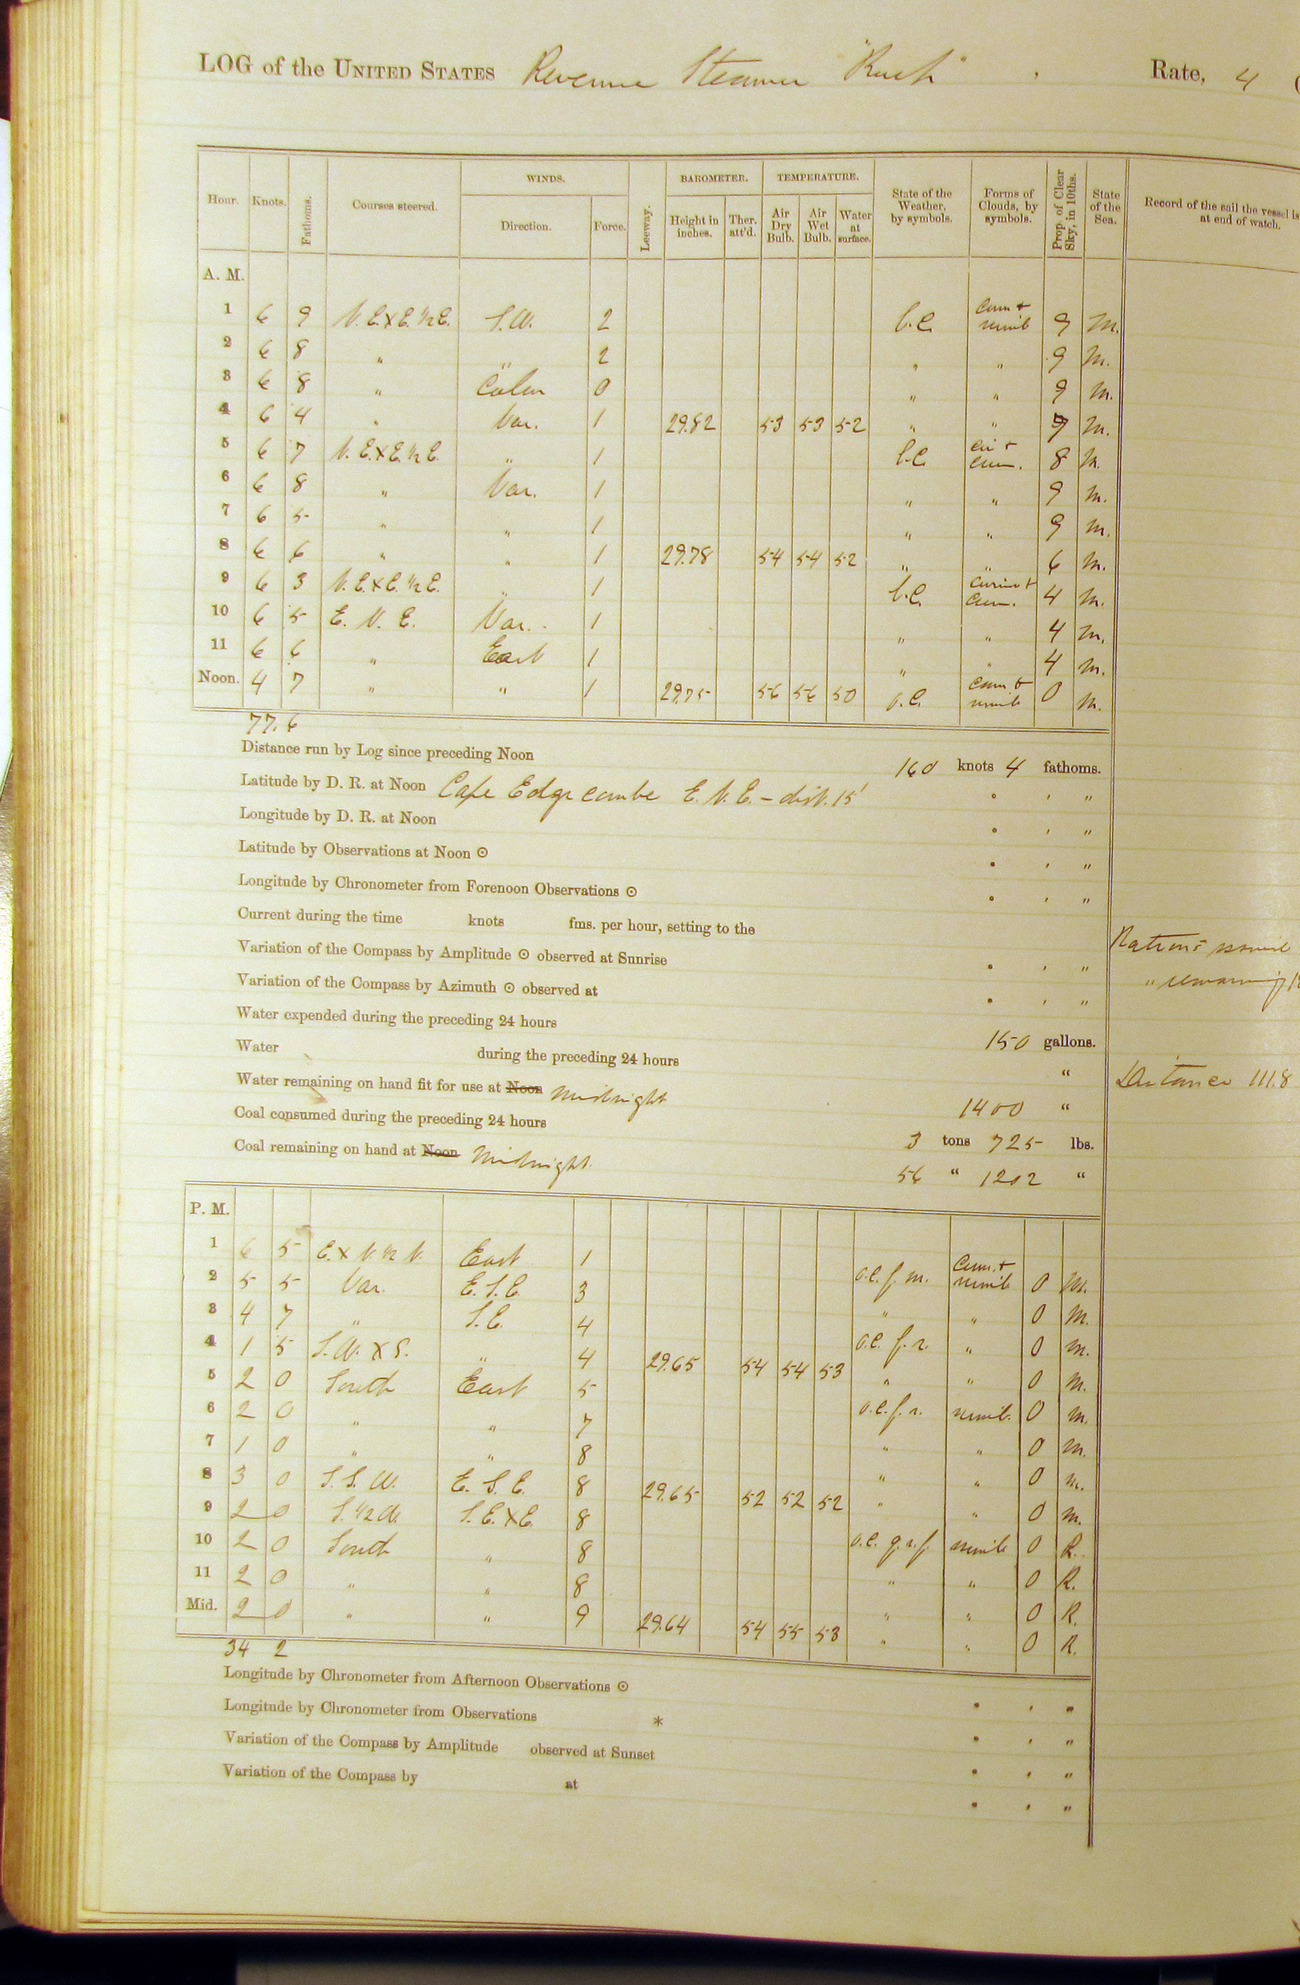 LOG of the UNITED STATES Revenue Steamer "Rush" , Rate, 4
Hour. Knots. Fathoms. Courses steered. WINDS. Direction. Force. Leeway. BAROMETER. Height in inches. Ther. att'd. TEMPERATURE. Air Dry Bulb. Air Wet Bulb. Water at surface. State of the Weather, by symbols. Forms of Clouds, by symbols. Prop. of Clear Sky, in 10ths. State of the Sea. Record of the sail the vessel is at end of watch.
A. M.
1 6 9 N.E.xE.½E. S.W. 2 b.c. Cum + nimb 9 M.
2 6 8 " " 2 " " 9 M.
3 6 8 " Calm 0 " " 9 M.
4 6 4 " Var. 1 29.82 53 53 52 " " 9 M.
5 6 7 N.E.xE.½E. " 1 b.c. cir + cum. 8 M.
6 6 8 " Var. 1 " " 9 M.
7 6 5 " " 1 " " 9 M.
8 6 6 " " 1 29.78 54 54 52 " " 6 M.
9 6 3 N.E.xE.½E. " 1 b.c. cum. 4 M.
10 6 5 E.N.E. Var. 1 " " 4 M.
11 6 6 " East 1 " " 4 M.
Noon. 4 7 " " 1 29.75 56 56 50 o.c. Cum. + nimb 0 M.
77.6
Distance run by Log since preceding Noon 160 knots 4 fathoms.
Latitude by D. R. at Noon Cape Edgecombe E.N.E. – dist. 15' ° ' "
Longitude by D. R. at Noon ° ' "
Latitude by Observations at Noon ☉ ° ' "
Longitude by Chronometer from Forenoon Observations ☉ ° ' "
Current during the time knots fms. per hour, setting to the
Variation of the Compass by Amplitude ☉ observed at Sunrise ° ' " Rations
Variation of the Compass by Azimuth ☉ observed at ° ' " " remaining
Water expended during the preceding 24 hours 150 gallons.
Water during the preceding 24 hours "
Water remaining on hand fit for use at Noon Midnight 1400 " Distance 111.8
Coal consumed during the preceding 24 hours 3 tons 725 lbs.
Coal remaining on hand at Noon Midnight. 56 " 1202 "
P. M.
1 6 5 E.xN.½N. East 1 o.c.f.m. Cum. + nimb 0 M.
2 5 5 Var. E.S.E. 3 " " 0 M.
3 4 7 " S.E. 4 o.c.f.r. " 0 M.
4 1 5 S.W.xS. " 4 29.65 54 54 53 " " 0 M.
5 2 0 South East 5 o.c.f.r. nimb. 0 M.
6 2 0 " " 7 " " 0 M.
7 1 0 " " 8 " " 0 M.
8 3 0 S.S.W. E.S.E. 8 29.65 52 52 52 " " 0 M.
9 2 0 S.½W. S.E.xE. 8 o.c.q.r.f. nimb 0 R.
10 2 0 South " 8 " " 0 R.
11 2 0 " " 8 " " 0 R.
Mid. 2 0 " " 9 29.64 54 55 53 " " 0 R.
34 2
Longitude by Chronometer from Afternoon Observations ☉ ° ' "
Longitude by Chronometer from Observations * ° ' "
Variation of the Compass by Amplitude observed at Sunset ° ' "
Variation of the Compass by at ° ' "